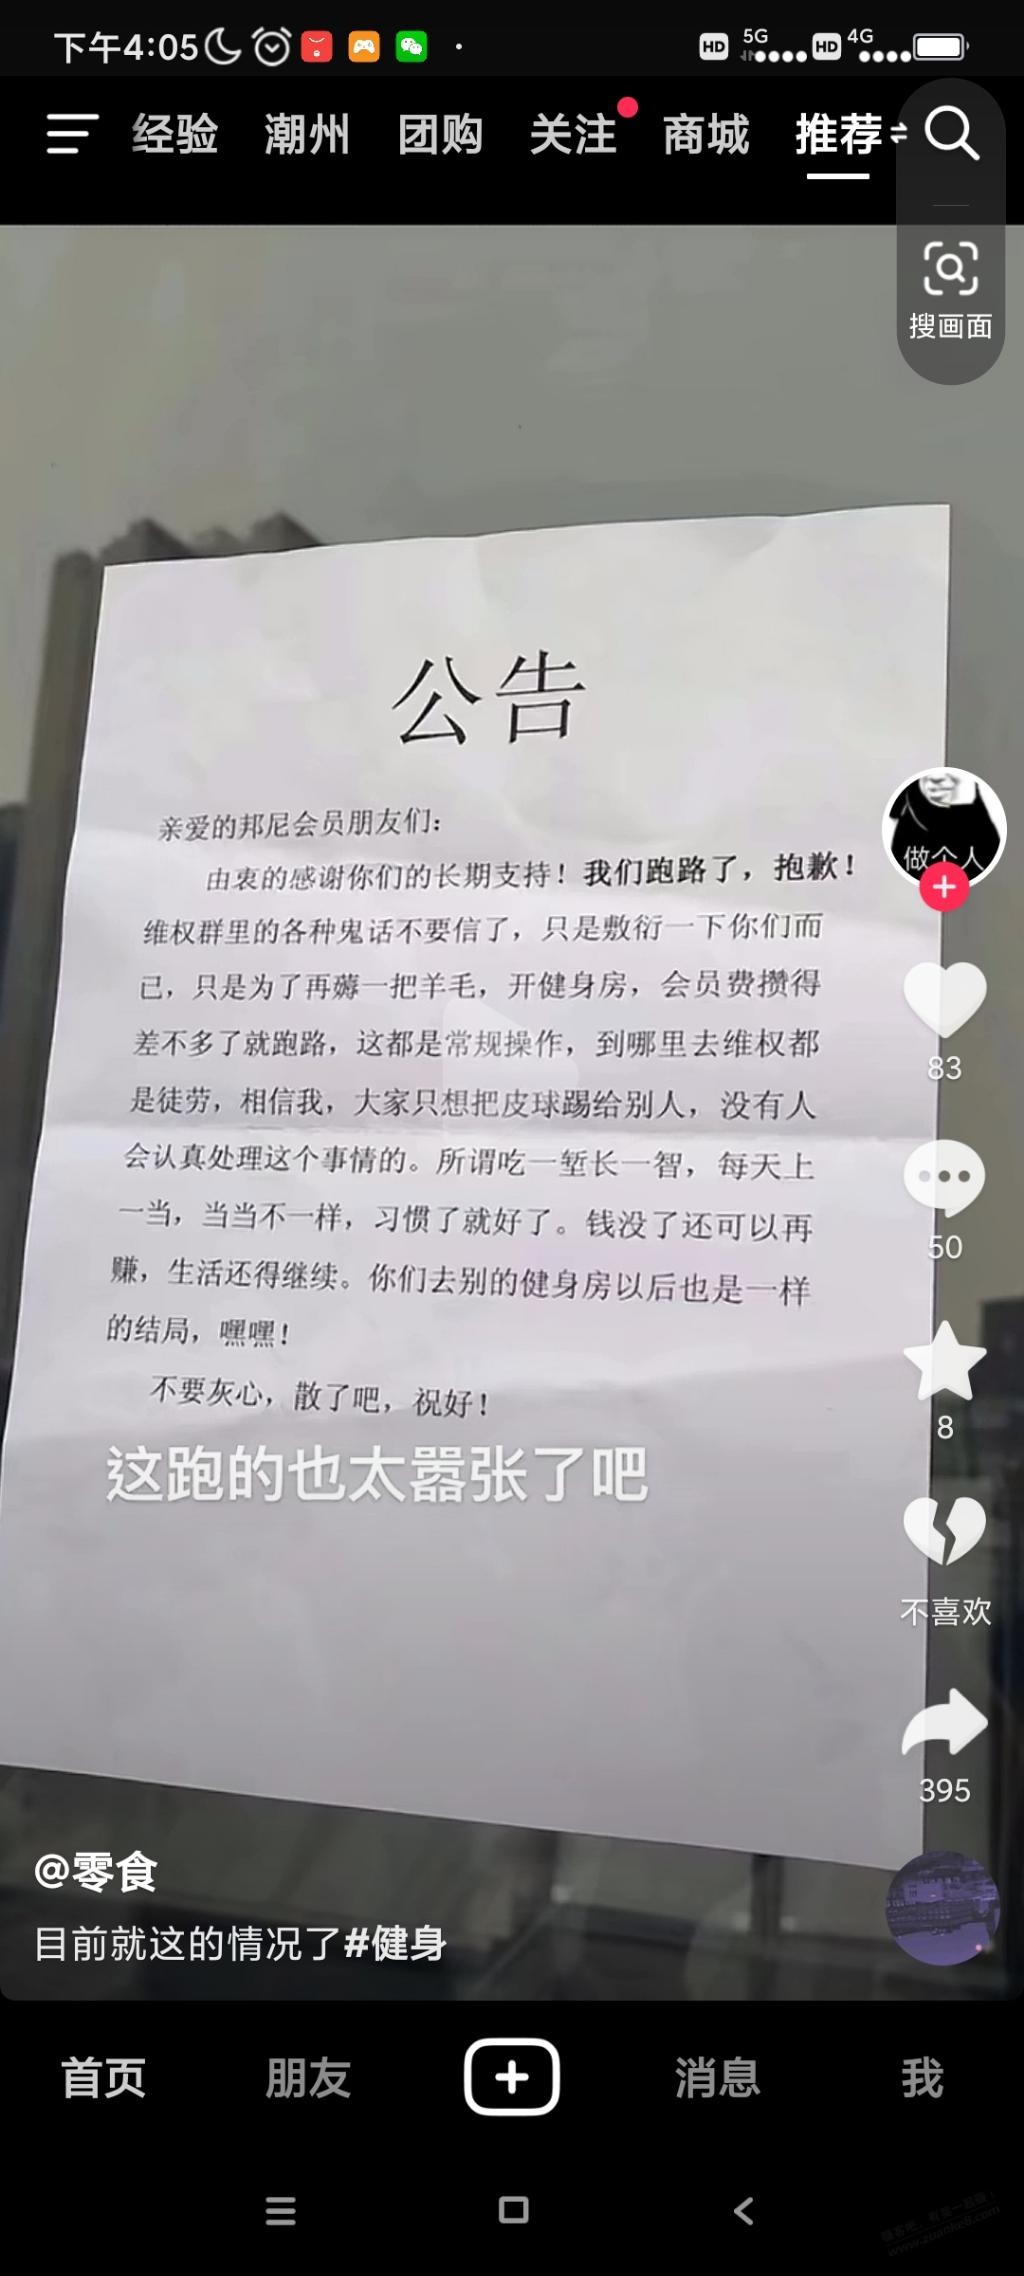 下午4:05
HD 5G HD 4G
经验 潮州 团购 关注 商城 推荐
搜画面
公告
亲爱的邦尼会员朋友们：
由衷的感谢你们的长期支持！我们跑路了，抱歉！
维权群里的各种鬼话不要信了，只是敷衍一下你们而
已，只是为了再薅一把羊毛，开健身房，会员费攒得
差不多了就跑路，这都是常规操作，到哪里去维权都
是徒劳，相信我，大家只想把皮球踢给别人，没有人
会认真处理这个事情的。所谓吃一堑长一智，每天上
一当，当当不一样，习惯了就好了。钱没了还可以再
赚，生活还得继续。你们去别的健身房以后也是一样
的结局，嘿嘿！
不要灰心，散了吧，祝好！
这跑的也太嚣张了吧
做个人
83
50
8
不喜欢
395
@零食
目前就这的情况了#健身
首页 朋友 消息 我
www.zuanke8.com